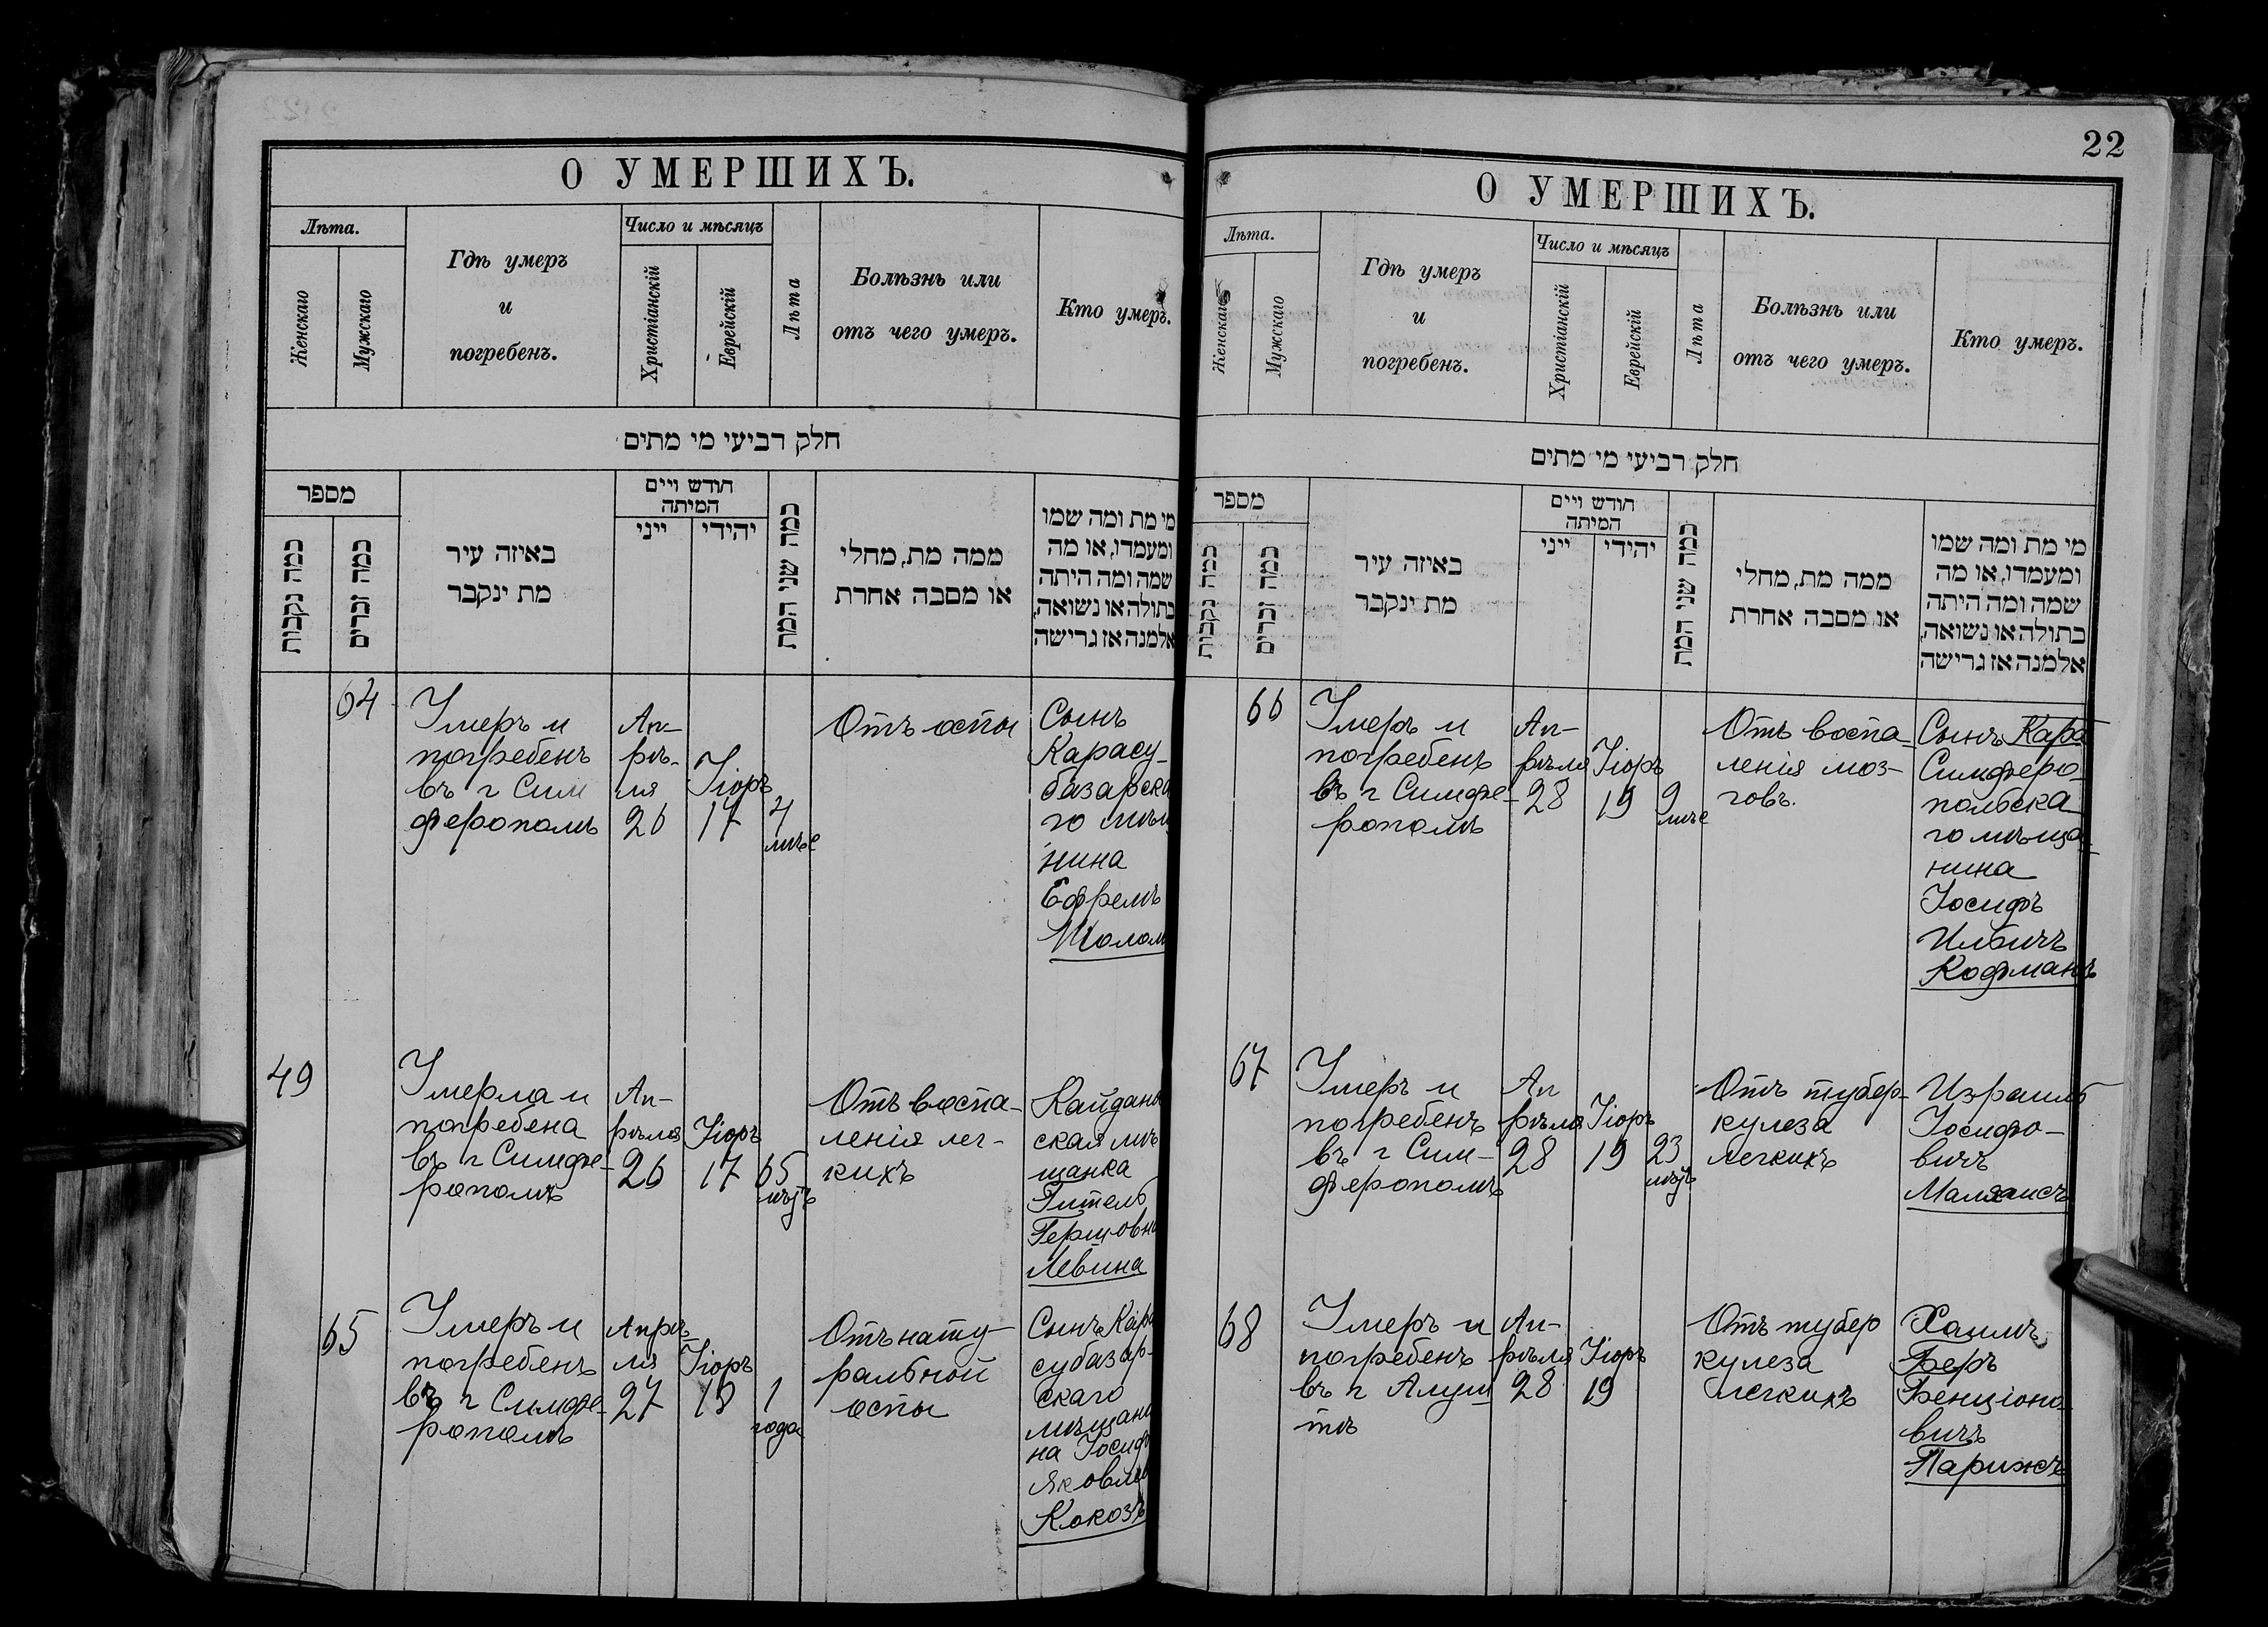 О УМЕРШИХЪ.
Лѣта.
Женскаго
Мужскаго
Гдѣ умеръ
и
погребенъ.
Число и мѣсяцъ
Христіанскій
Еврейскій
Лѣта
Болѣзнь или
отъ чего умеръ.
Кто умеръ.
חלק רביעי מי מתים
מספר
כמה נקבות
כמה זכרים
באיזה עיר
מת ינקבר
חודש ויים
המיתה
ייני
יהידי
כמה שני המת
ממה מת, מחלי
או מסבה אחרת
מי מת ומה שמו
ומעמדו, או מה
שמה ומה היתה
בתולה או נשואה,
אלמנה אז גרישה
64
Умеръ и
погребенъ
въ г Сим
ферополѣ
Ап-
рѣ-
ля
26
Іюръ
17
4
мѣс
Отъ оспы
Сынъ
Карасу-
базарска
го мѣщ
нина
Ефремъ
Шолом
49
Умерла и
погребена
въ г Симфе-
рополѣ
Ап-
рѣля
26
Іюръ
17
65
лѣтъ
Отъ воспа-
ленія лег-
кихъ
Кайдан
ская мѣ
щанка
Гитель
Гершовн
Левина
65
Умеръ и
погребенъ
въ г Симфе-
рополѣ
Апрѣ-
ля
27
Іюръ
18
1
года
Отъ нату-
ральной
оспы
Сынъ Кара
субазар-
скаго
мѣщани
на Іосиф
Яковлев
Кокозъ
22
О УМЕРШИХЪ.
Лѣта.
Женскаго
Мужскаго
Гдѣ умеръ
и
погребенъ.
Число и мѣсяцъ
Христіанскій
Еврейскій
Лѣта
Болѣзнь или
отъ чего умеръ.
Кто умеръ.
חלק רביעי מי מתים
מספר
כמה נקבות
כמה זכרים
באיזה עיר
מת ינקבר
חודש ויים
המיתה
ייני
יהידי
כמה שני המת
ממה מת, מחלי
או מסבה אחרת
מי מת ומה שמו
ומעמדו, או מה
שמה ומה היתה
בתולה או נשואה,
אלמנה אז גרישה
66
Умеръ и
погребенъ
въ г Симфе-
рополѣ
Ап-
рѣля
28
Іюръ
19
9
мѣс
Отъ воспа-
ленія моз-
говъ.
Сынъ Кара
Симферо-
польска-
го мѣща-
нина
Іосифъ
Ильичъ
Кофманъ
67
Умеръ и
погребенъ
въ г Сим-
ферополѣ
Ап
рѣля
28
Іюръ
19
23
лѣтъ
Отъ тубер-
кулеза
легкихъ
Израиль
Іосифо-
вичъ
68
Умеръ и
погребенъ
въ г Алуш
тѣ
Ап-
рѣля
28
Іюръ
19
Отъ тубер
кулеза
легкихъ
Хаимъ
Беръ
Бенціоно-
вичъ
Парижъ